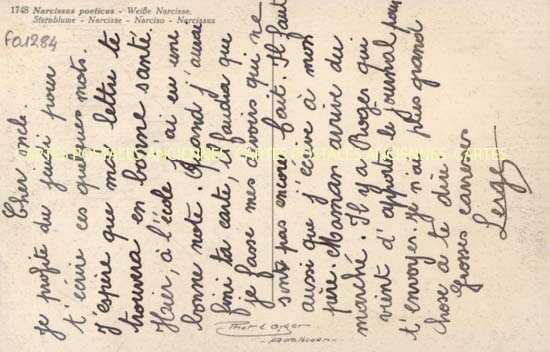 1748 Narcissus poeticus - Weiße Narcisse,
Sternblume - Narcisse - Narciso - Narcissus
FO1284
Cher oncle.
je profite du jeudi pour
t'écrire ces quelques mots.
J'espère que ma lettre te
trouvera en bonne santé.
Hier, à l'école j'ai eu une
bonne note. Quand j'aurai
fini ta carte, il faudra que
je fasse mes devoirs qui ne
sont pas encore fait. Il faut
aussi que j'écrive à mon
père. Maman arrive du
marché. Il y a Roger qui
vient d'apporter le journal pour
t'envoyer. Je n'ai plus grand
chose à te dire
Grosses caresses
Serge
CARTES POSTALES ANCIENNES CARTES POSTALES ANCIENNES CARTES